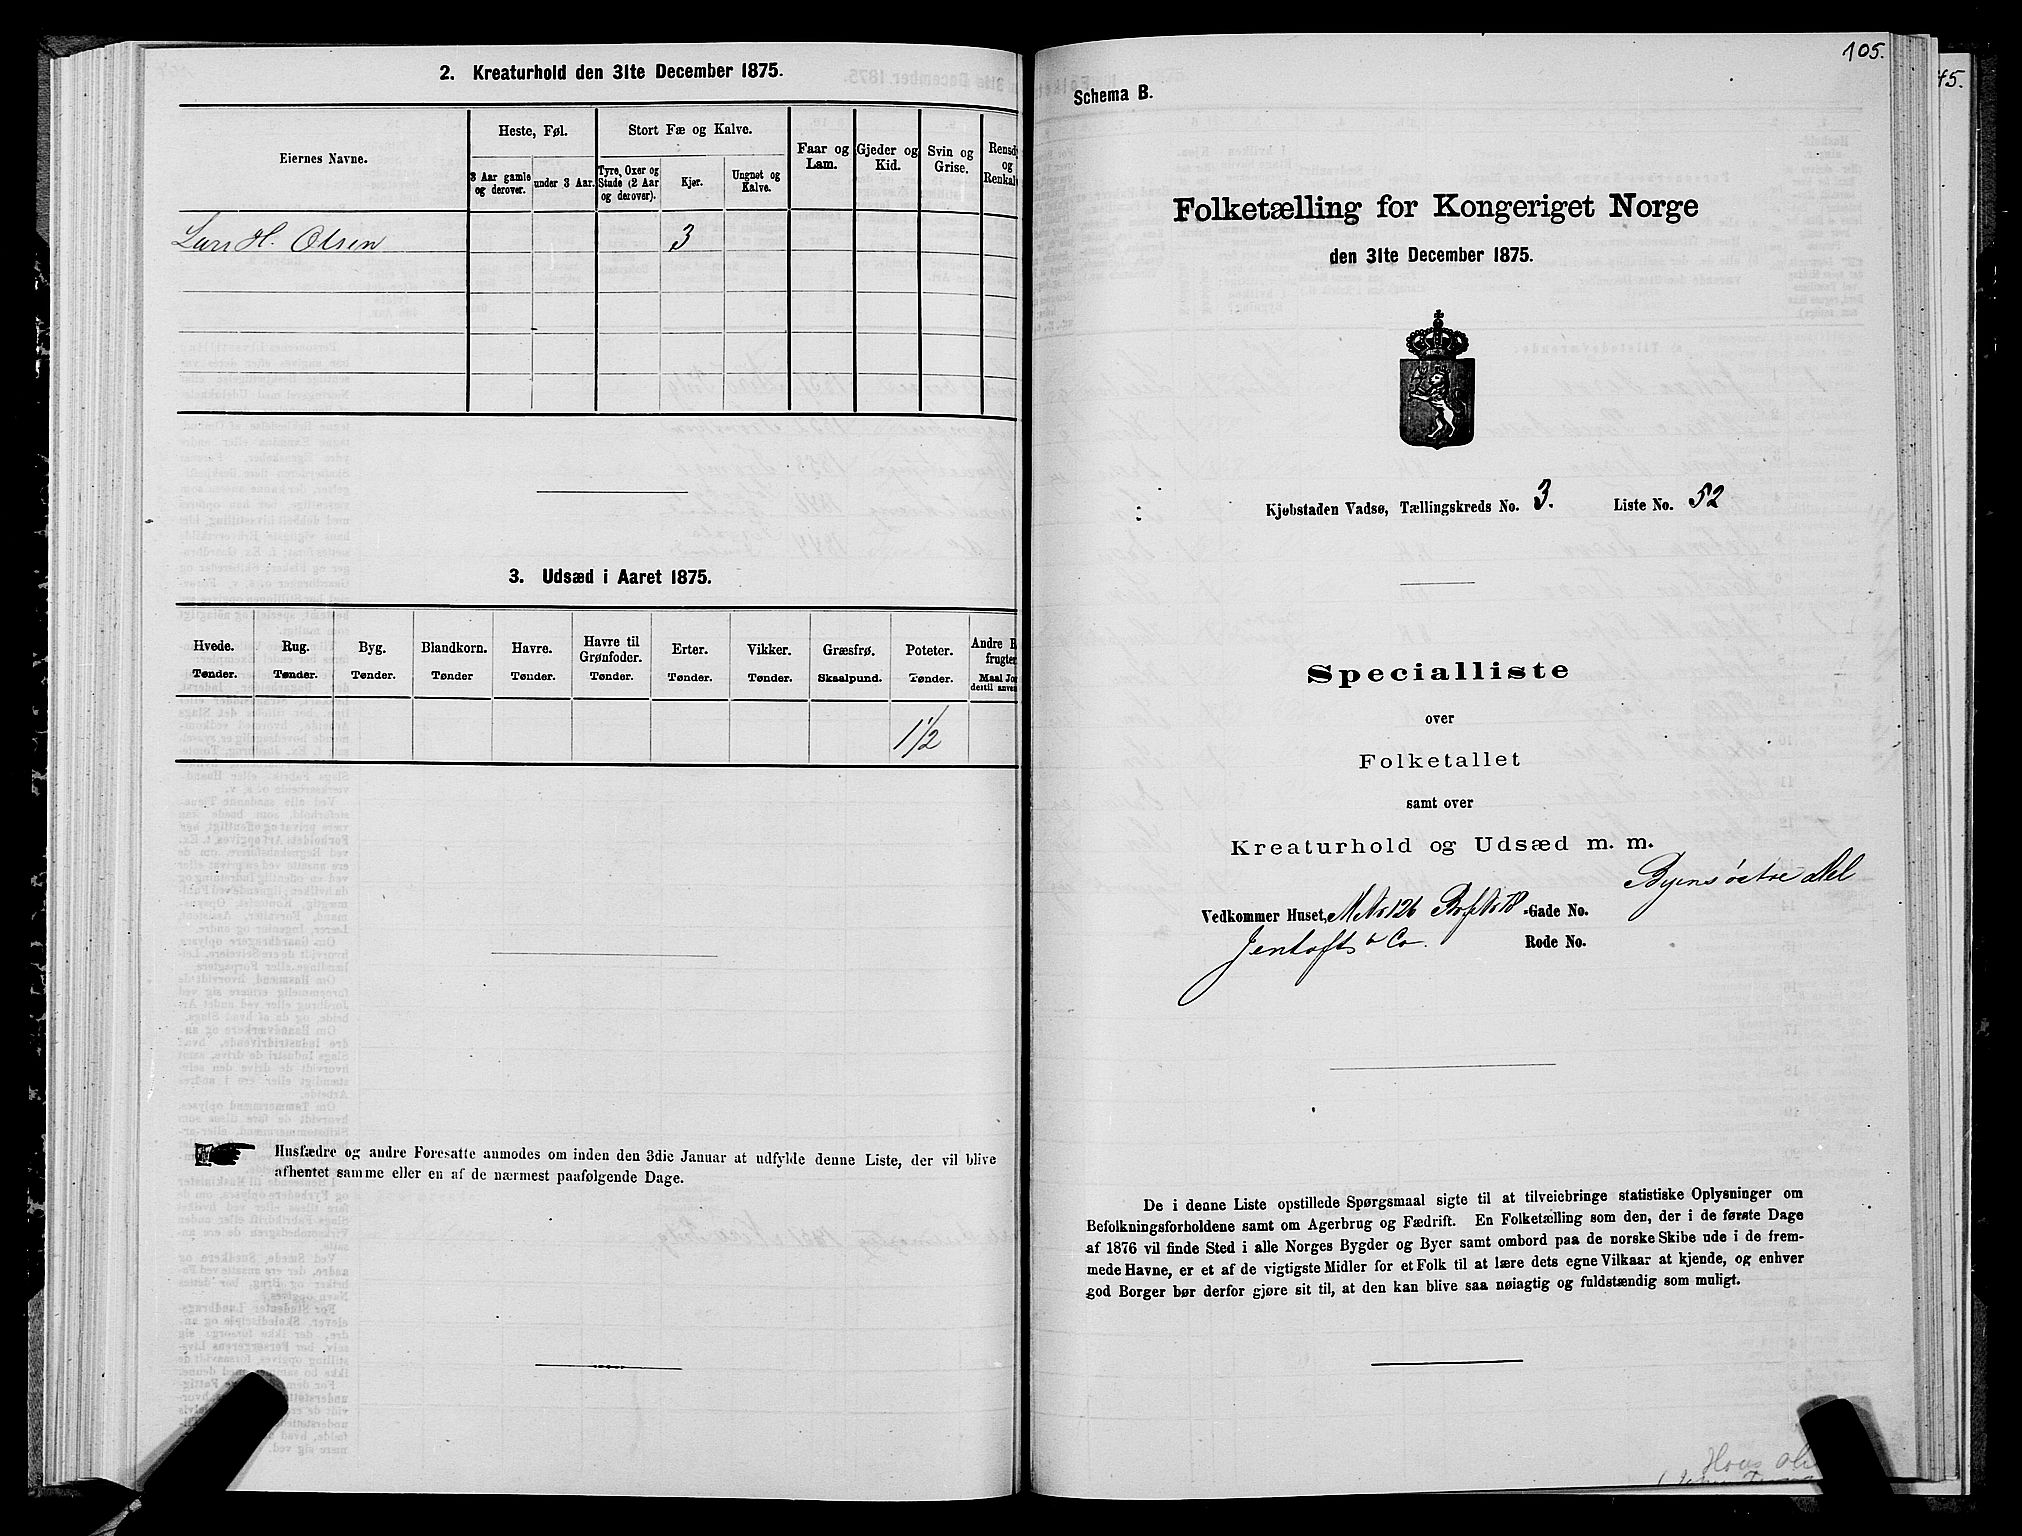 2. Kreaturhold den 31te December 1875.
Eiernes Navne.
Heste, Føl.
Stort Fæ og Kalve.
Faar og Lam.
Gjeder og Kid.
Svin og Grise.
Rensdy
og
Renkalv
3 Aar gamle og derover.
under 3 Aar.
Tyre, Oxer og Stude (2 Aar og derover).
Kjør.
Ungnøt og Kalve.
Lars H. Olsen 3
3. Udsæd i Aaret 1875.
Hvede. Rug. Byg. Blandkorn. Havre. Havre til Grønfoder. Erter. Vikker. Græsfrø. Poteter. Andre R
frugter
Tønder. Tønder. Tønder. Tønder Tønder. Tønder. Tønder. Tønder. Skaalpund. Tønder. Maal Jor
dertil anven
1 1/2
Husfædre og andre Foresatte anmodes om inden den 3die Januar at udfylde denne Liste, der vil blive
afhentet samme eller en af de nærmest paafølgende Dage.
105.
45.
Schema B.
Folketælling for Kongeriget Norge
den 31te December 1875.
Kjøbstaden Vadsø, Tællingskreds No. 3. Liste No. 52
Specialliste
over
Folketallet
samt over
Kreaturhold og Udsæd m. m.
Byens østre Del
Vedkommer Huset, M No 126 -Gade No.
Jentoft & Co. Rode No.
De i denne Liste opstillede Spørgsmaal sigte til at tilveiebringe statistiske Oplysninger om
Befolkningsforholdene samt om Agerbrug og Fædrift. En Folketælling som den, der i de første Dage
af 1876 vil finde Sted i alle Norges Bygder og Byer samt ombord paa de norske Skibe ude i de frem-
mede Havne, er et af de vigtigste Midler for et Folk til at lære dets egne Vilkaar at kjende, og enhver
god Borger bør derfor gjøre sit til, at den kan blive saa nøiagtig og fuldstændig som muligt.